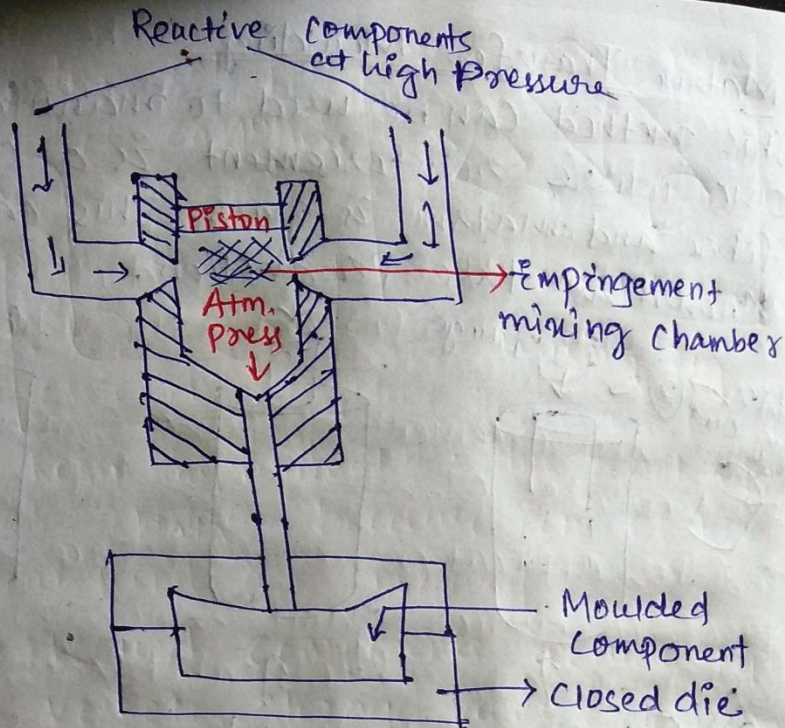 Reactive components
at high Pressure
Piston
Impingement
mixing chamber
Atm.
press
Moulded
component
closed die